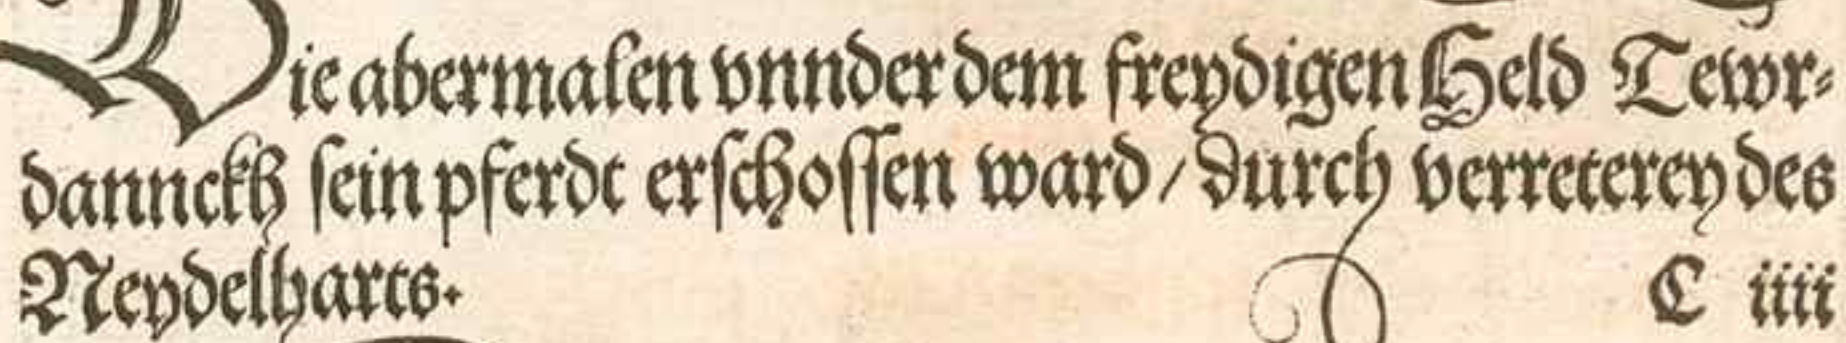 Wie abermalen vnnder dem freydigen Held Tewr⸗
dannckh ſein pferdt erſchoſſen ward / durch verreterey des
Neydelharts.
C iiii